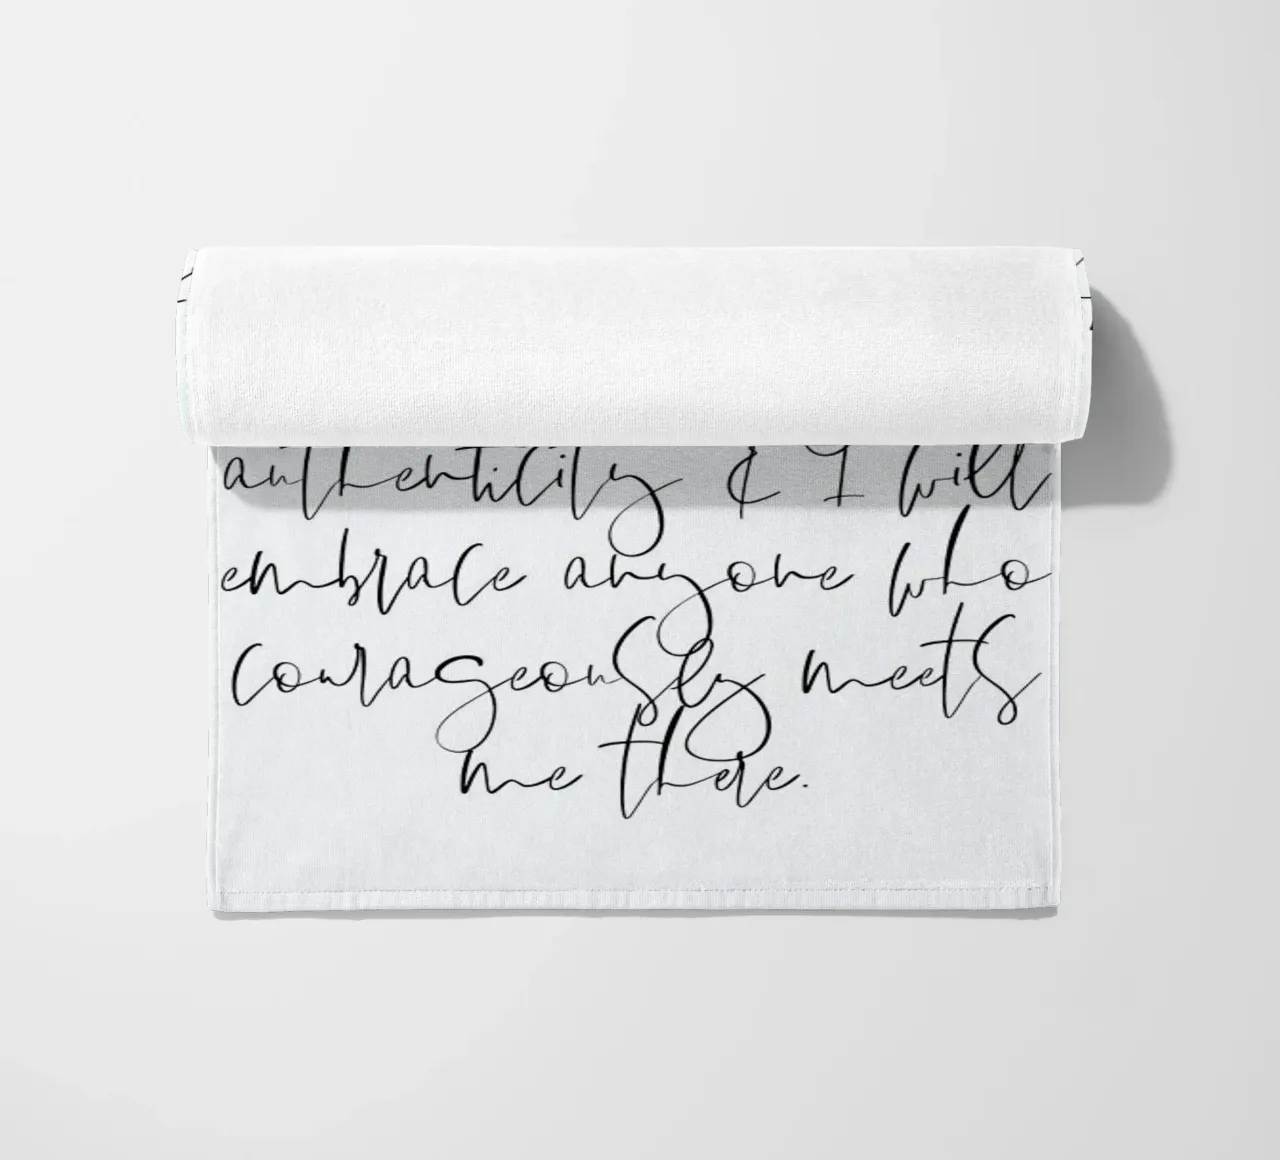 authenticity & I will
embrace anyone who
courageously meets
me there.